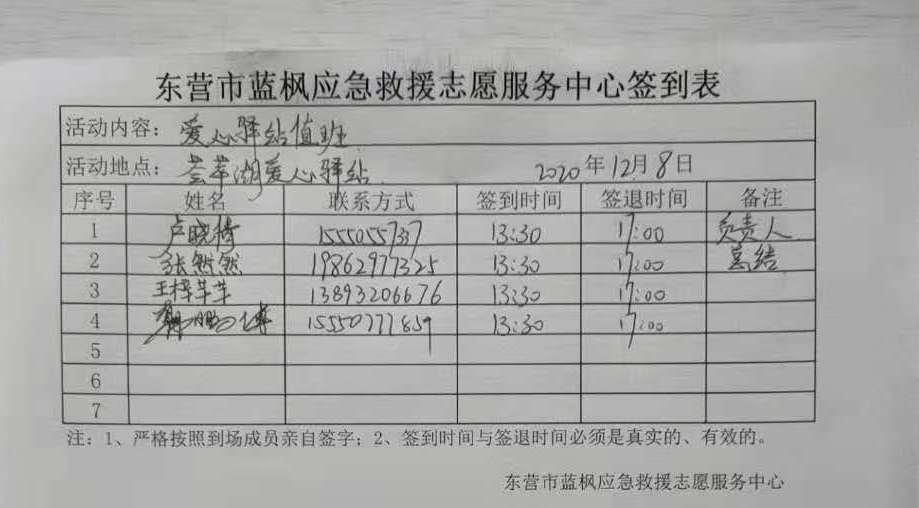 东营市蓝枫应急救援志愿服务中心签到表
活动内容：爱心驿站值班
活动地点：荟萃湖爱心驿站 2020年12月8日
序号 姓名 联系方式 签到时间 签退时间 备注
1 卢晓倚 15550557337 13:30 17:00 负责人
2 张甜然 19862977325 13:30 17:00 总结
3 王梓芊芊 13893206676 13:30 17:00
4 15550777859 13:30 17:00
5
6
7
注：1、严格按照到场成员亲自签字；2、签到时间与签退时间必须是真实的、有效的。
东营市蓝枫应急救援志愿服务中心